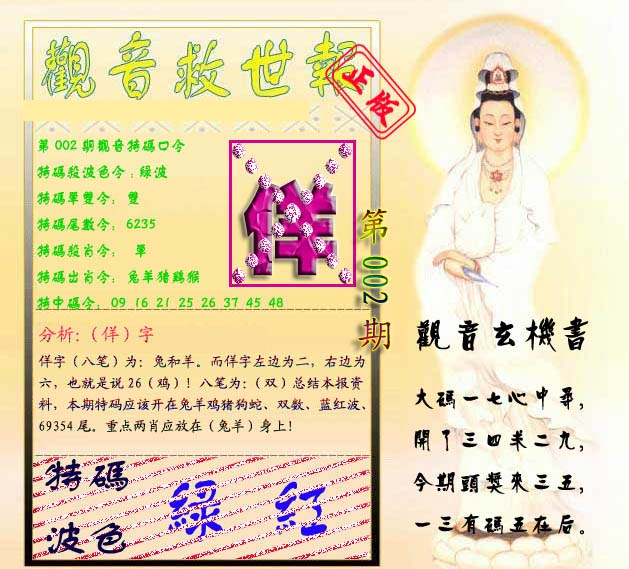 觀音救世報
正版
第002期觀音特碼口令
特碼殺波色令:綠波
特碼單雙令: 雙
特碼尾數令: 6235
特碼殺肖令: 單
特碼出肖令: 兔羊猪鷄猴
特中碼令: 09 16 21 25 26 37 45 48
佯
第002期
分析:（佯）字
佯字（八笔）为：兔和羊。而佯字左边为二，右边为
六，也就是说26（鸡）！八笔为：（双）总结本报资
料，本期特码应该开在兔羊鸡猪狗蛇、双数、蓝红波、
69354尾。重点两肖应放在（兔羊）身上！
特碼
波色
綠 紅
觀音玄機書
大碼一七心中尋，
開了三四半二九，
今期頭獎來三五，
一三有碼五在后。